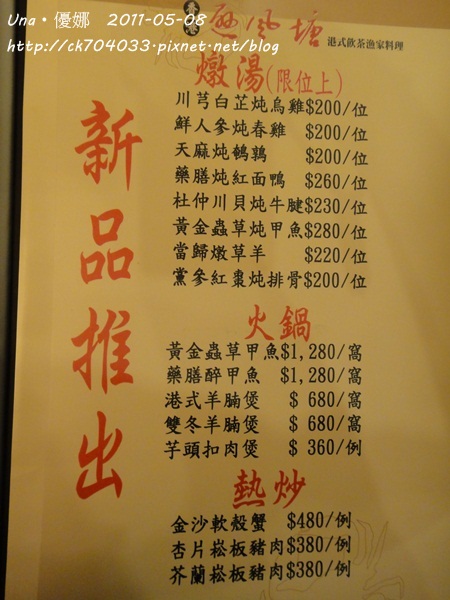 Una·優娜 2011-05-08
http://ck704033.pixnet.net/blog
香港 避風塘 港式飲茶漁家料理
燉湯(限位上)
新品推出
川芎白芷炖烏雞$200/位
鮮人參炖春雞 $200/位
天麻炖鵪鶉 $200/位
藥膳炖紅面鴨 $260/位
杜仲川貝炖牛腱$230/位
黃金蟲草炖甲魚$280/位
當歸燉草羊 $220/位
黨參紅棗炖排骨$200/位
火鍋
黃金蟲草甲魚$1,280/窩
藥膳醉甲魚 $1,280/窩
港式羊腩煲 $ 680/窩
雙冬羊腩煲 $ 680/窩
芋頭扣肉煲 $ 360/例
熱炒
金沙軟殼蟹 $480/例
杏片菘板豬肉$380/例
芥蘭菘板豬肉$380/例